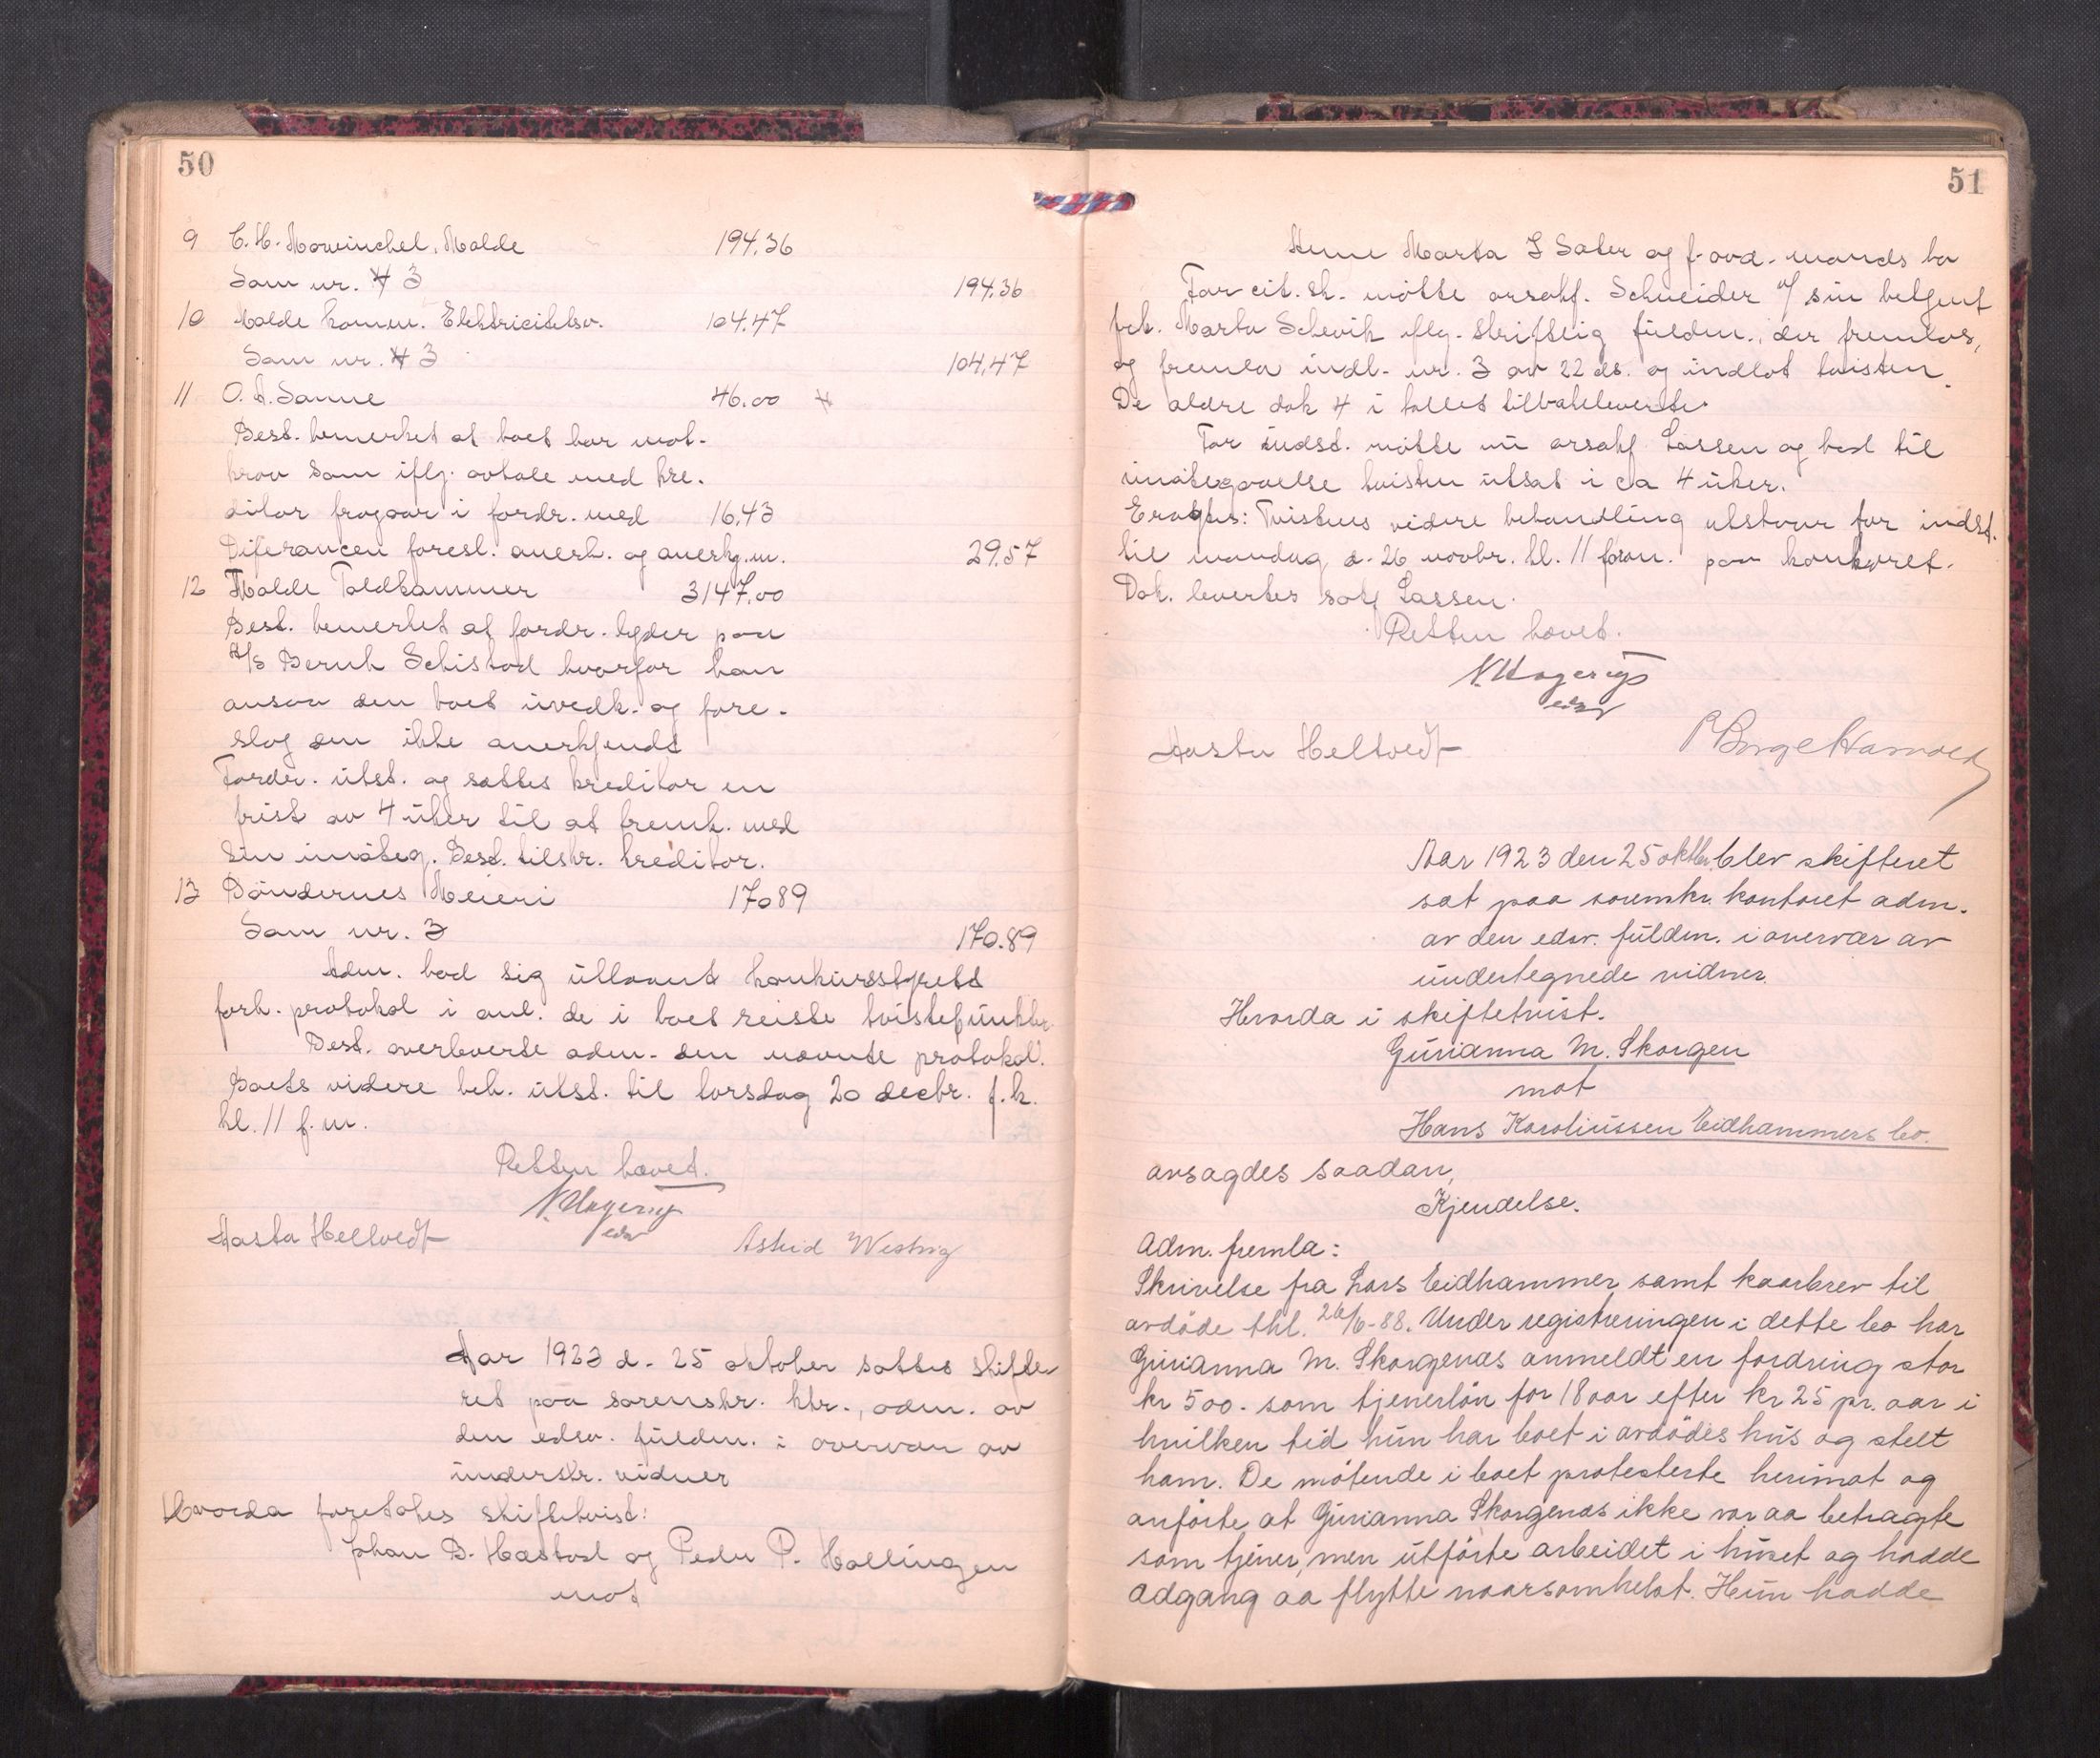 50
9 C. H. Mowinckel, Molde 194.36
Som nr. 3 194.36
10 Molde komm. Elektricitetsv. 104.47
Som nr. 3 104.47
11 O. A. Sanne 46.00
Best. bemerket at boet har mot-
krav som iflg. avtale med kre-
ditor fragaar i fordr. med 16.43
Diferancen foresl. anerk. og anerkg. m. 29.57
12 Molde Toldkammer 3147.00
Best. bemerket at fordr. lyder paa
A/S Bernh Schistad hvorfor han
ansaa den boet uvedk. og fore-
slog den ikke anerkjendt
Fordr. utst. og sattes kreditor en
frist av 4 uker til at fremk. med
sin imøteg. Best. tilskr. kreditor.
13 Bøndernes Meieri 170.89
Som nr. 3 170.89
Adm. bad sig utlaant konkursstyrets
forh. protokol i anl. de i boet reiste tvistepunkter
Best. overleverte adm. den nævnte protokol.
Boets videre beh. utst. til torsdag 20 decbr. f. k.
kl. 11 f. m.
Retten hævet.
N. Hagerup
edsv
Aasta Heltvedt Astrid Westvig
Aar 1923 d. 25 oktober sattes skifte-
ret paa sorenskr. ktr., adm. av
den edsv. fuldm. i overvær av
underskr. vidner
Hvorda foretokes skiftetvist:
Johan B. Hastad og Peder P. Hollingen
mot
51
Marta I Sæter og f. avd. mands bo
For cit. sk. møtte orsakf. Schneider m/ sin
frk. Marta Schevik iflg. skriftlig fuldm., der fremlas,
og fremla indl. nr. 3 av 22 ds. og indlot tvisten.
De ældre dok 4 i tallet tilbakeleverte.
For indst. møtte nu orsakf Lassen og bad til
imøtegaaelse tvisten utsat i ca 4 uker.
Eragtes: Tvistens videre behandling utstaar for indst.
til mandag d. 26 novbr. kl. 11 form. paa kontoret.
Dok. levertes sakf Lassen.
Retten hævet.
N. Hagerup
edsv
Aasta Heltvedt
Aar 1923 den 25 oktbr. blev skifteret
sat paa sorenskr. kontoret adm.
av den edsv. fuldm. i overvær av
undertegnede vidner.
Hvorda i skiftetvist.
Gurianna M. Skorgen
mot
Hans Karoliussen Eidhammers bo.
avsagdes saadan,
Kjendelse.
Adm. fremla:
Skrivelse fra Lars Eidhammer samt kaarbrev til
avdøde thl. 26/6-88. Under registreringen i dette bo har
Gurianna M. Skorgenæs anmeldt en fordring stor
kr 500.- som tjenerløn for 18 aar efter kr 25 pr. aar i
hvilken tid hun har boet i avdødes hus og stelt
ham. De møtende i boet protesterte herimot og
anførte at Gurianna Skorgenæs ikke var aa betragte
som tjener, men utførte arbeidet i huset og hadde
adgang aa flytte naarsomhelst. Hun hadde